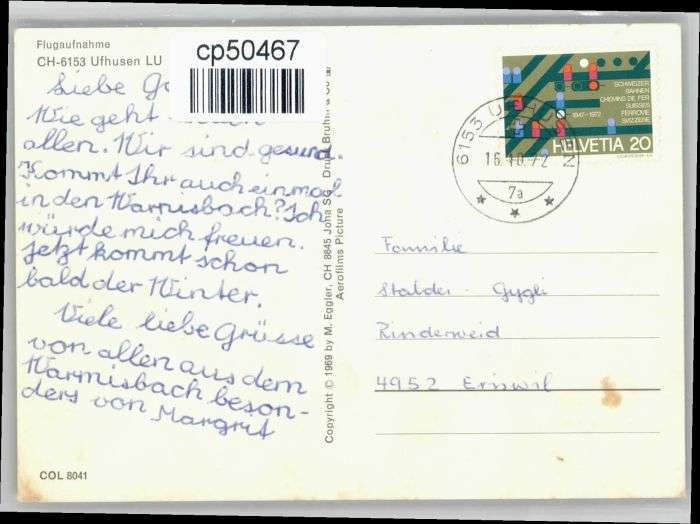 Flugaufnahme
CH-6153 Ufhusen LU
cp50467
Liebe
Wie geht
allen. Wir sind gesund.
Kommt Ihr auch einmal
in den Warmisbach? Ich
würde mich freuen.
Jetzt kommt schon
bald der Winter.
Viele liebe Grüsse
von allen aus dem
Warmisbach beson-
ders von Margrit
COL 8041
Copyright © 1969 by M. Eggler, CH 8645 Jona SG, Druck Bruhin
Aerofilms Picture
SCHWEIZER
BAHNEN
CHEMINS DE FER
SUISSES
FERROVIE
SVIZZERE
1847-1972
HELVETIA 20
6153 UFHUSEN
16.10.72
7a
Familie
Stalder - Gygli
Rinderweid
4952 Eriswil